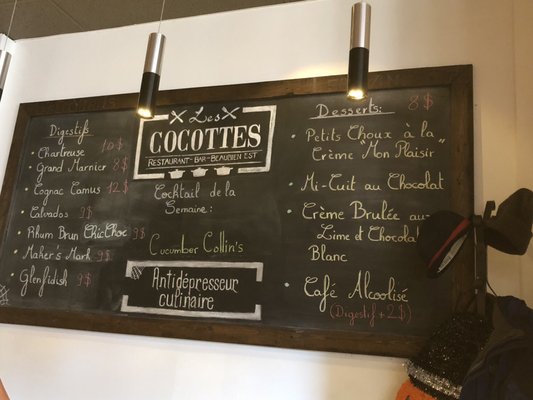 Digestifs
• Chartreuse 10$
• Grand Marnier 8$
• Cognac Camus 12$
• Calvados 9$
• Rhum Brun ChicChoc 9$
• Maker's Mark 9$
• Glenfidish 9$
Les
COCOTTES
RESTAURANT-BAR-BEAUBIEN EST
Cocktail de la
Semaine :
Cucumber Collin's
Antidépresseur
culinaire
Desserts : 8$
• Petits Choux à la
Crème "Mon Plaisir"
• Mi-Cuit au Chocolat
• Crème Brulée au
Lime et Chocolat
Blanc
• Café Alcoolisé
(Digestif + 2$)